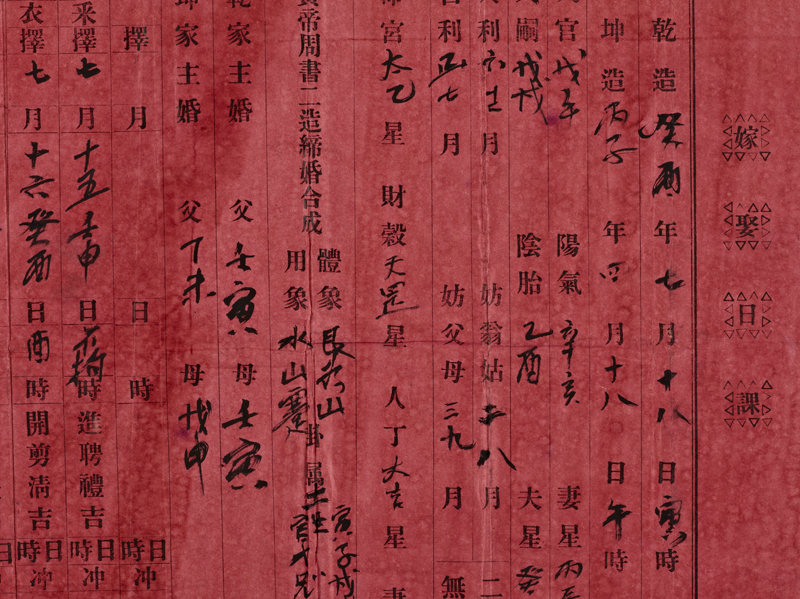 嫁娶日課
乾造癸酉年七月十八日寅時
坤造丙子年四月十八日午時
官戊午 陽氣辛亥 妻星丙
嗣戊戌 陰胎乙酉 夫星癸
利六十二月 妨翁姑二八月 二
利正七月 妨父母三九月 無
宮太乙星 財穀天罡星 人丁大吉星 妻
帝周書二造締婚合成
體象艮為山
用象水山蹇
卦屬土
寅子戌
官
乾家主婚 父壬寅 母壬寅
坤家主婚 父丁未 母戊申
擇 月 日 時 日時冲
采擇七月十五壬申日 時造聘禮吉 日時冲
衣擇七月十六癸酉日酉時開剪淸吉 日時冲
日